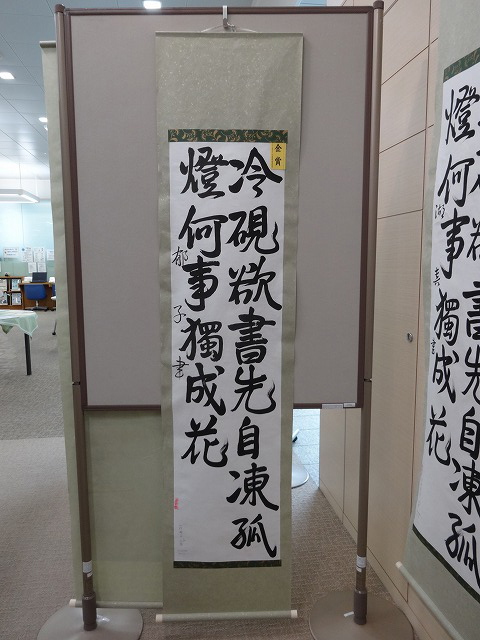 金賞
冷硯欲書先自凍孤
燈何事獨成花
郁子書
書先自凍孤
燈何事獨成花